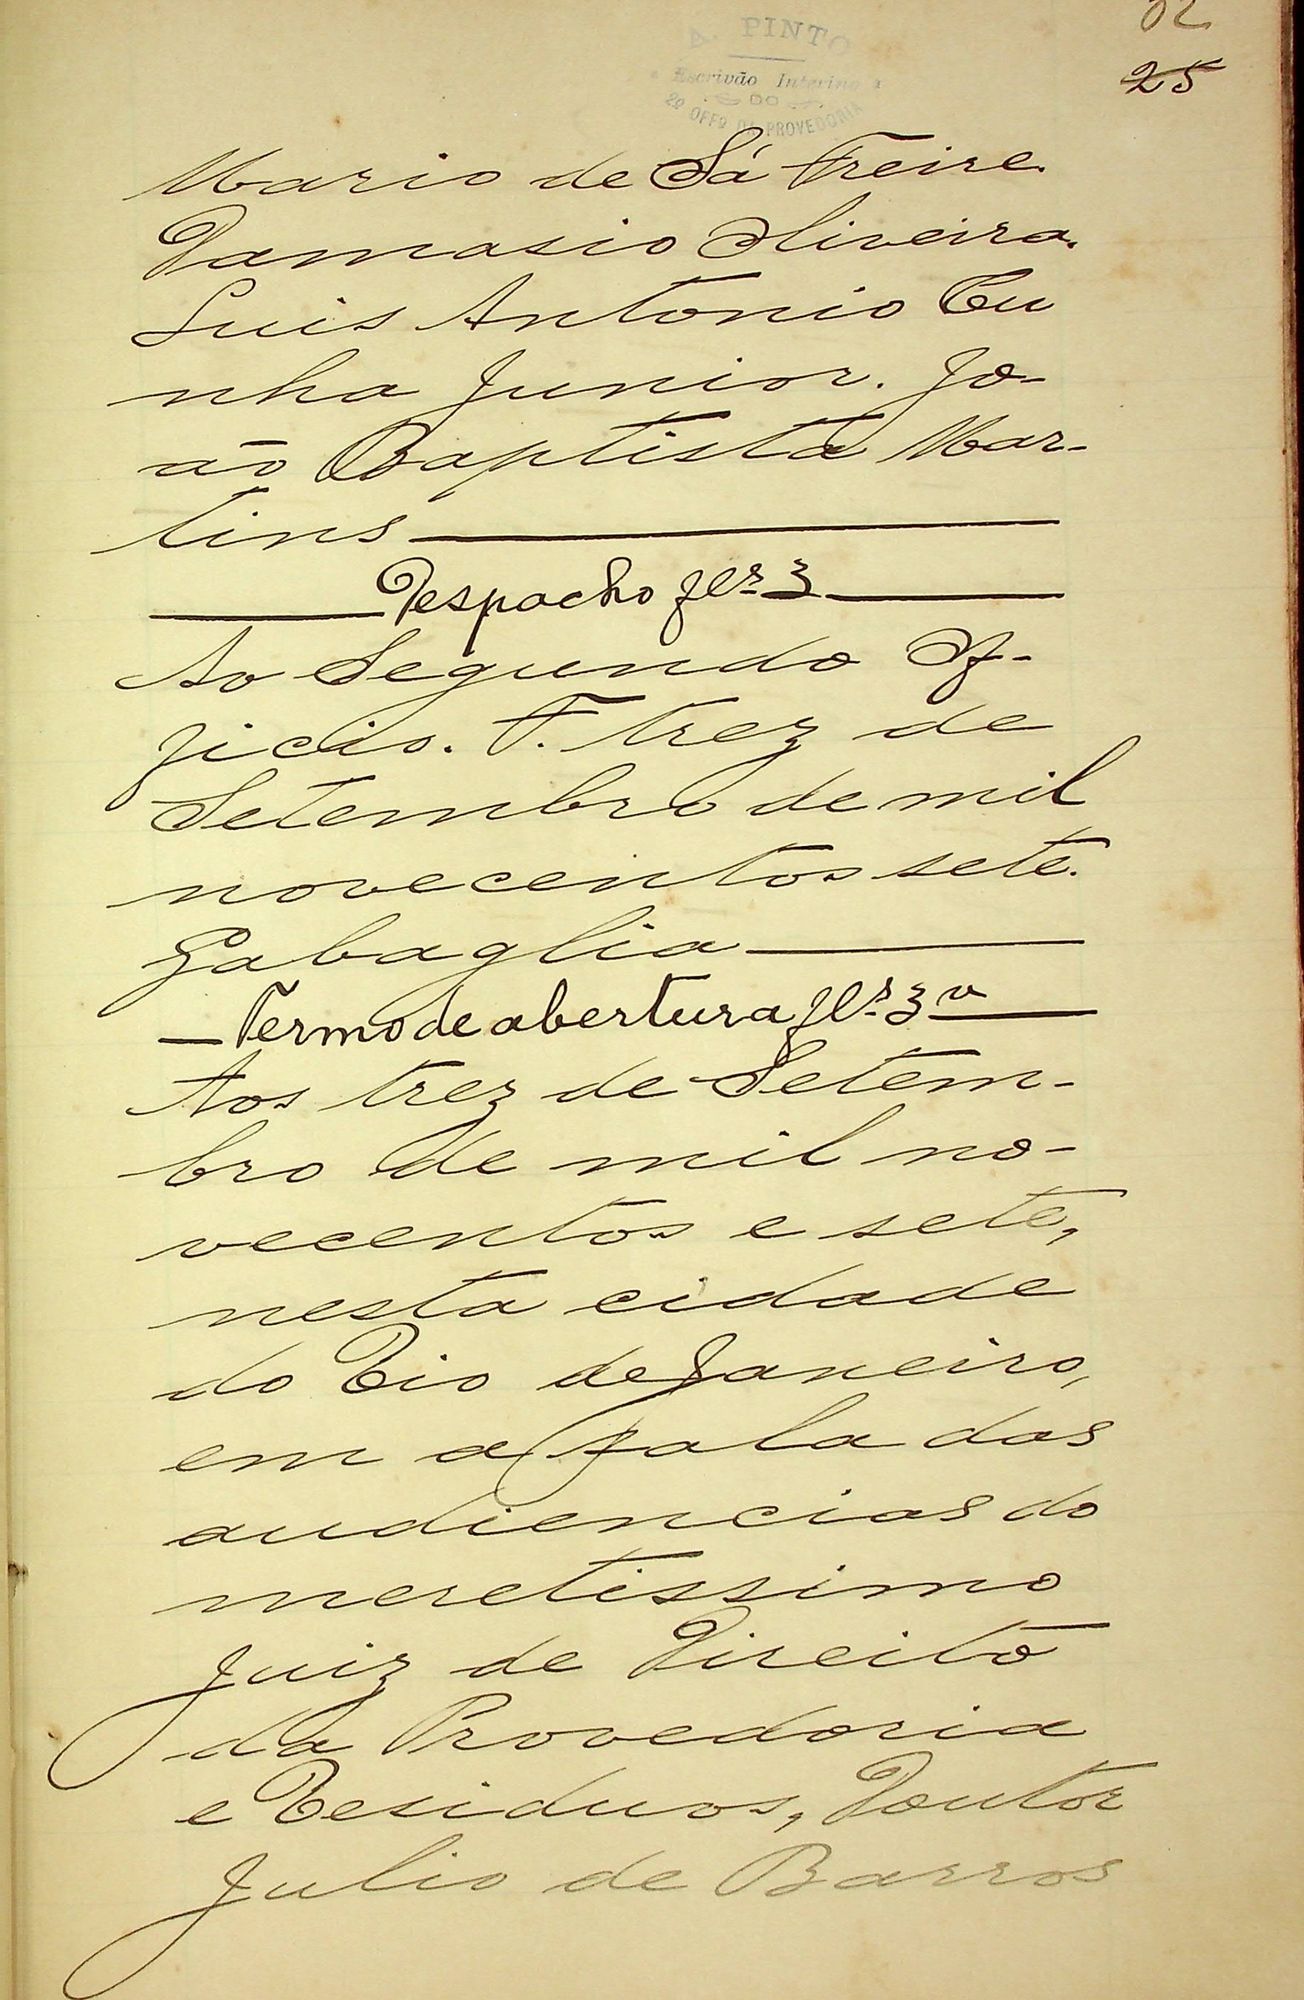 A. PINTO
Escrivão Interino
DO
2º OFFº DA PROVEDORIA
25
Mario de Sá Freire.
Damasio Oliveira.
Luis Antonio Cu
nha Junior. Jo-
ão Baptista Mar-
tins
Despacho fls 3
Ao Segundo Of-
ficio. F. trez de
Setembro de mil
novecentos sete.
Gabaglia
Termo de abertura fls. 3 v
Aos trez de Setem-
bro de mil no-
vecentos e sete,
nesta cidade
do Rio de Janeiro,
em a sala das
audiencias do
meretissimo
Juiz de Direito
da Provedoria
e Residuos, Doutor
Julio de Barros